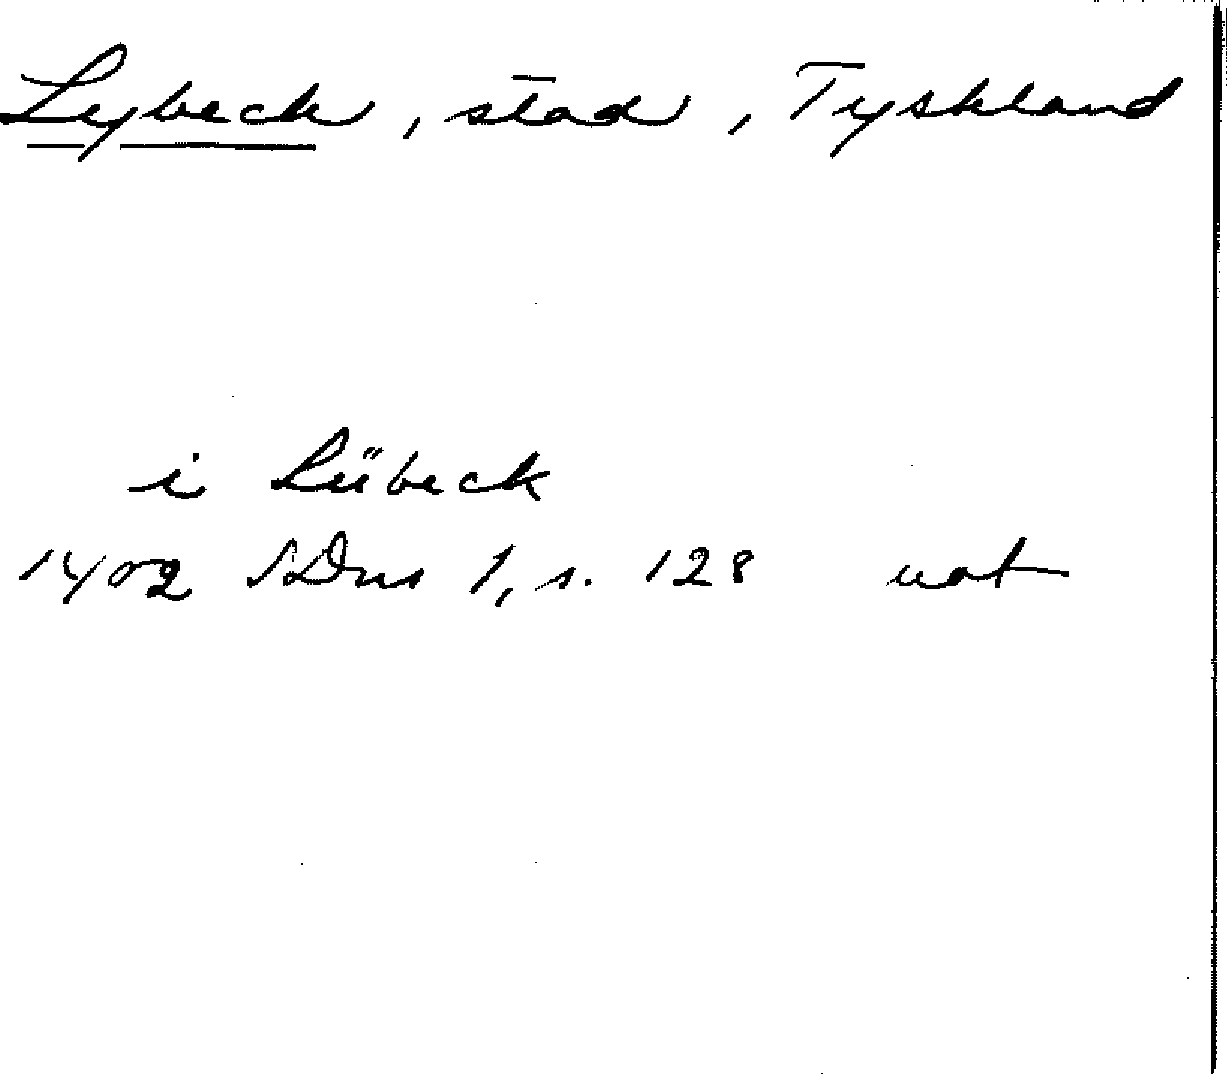 Lybeck, stad, Tyskland
i Lübeck
1402 SDns 1, s. 128 uat